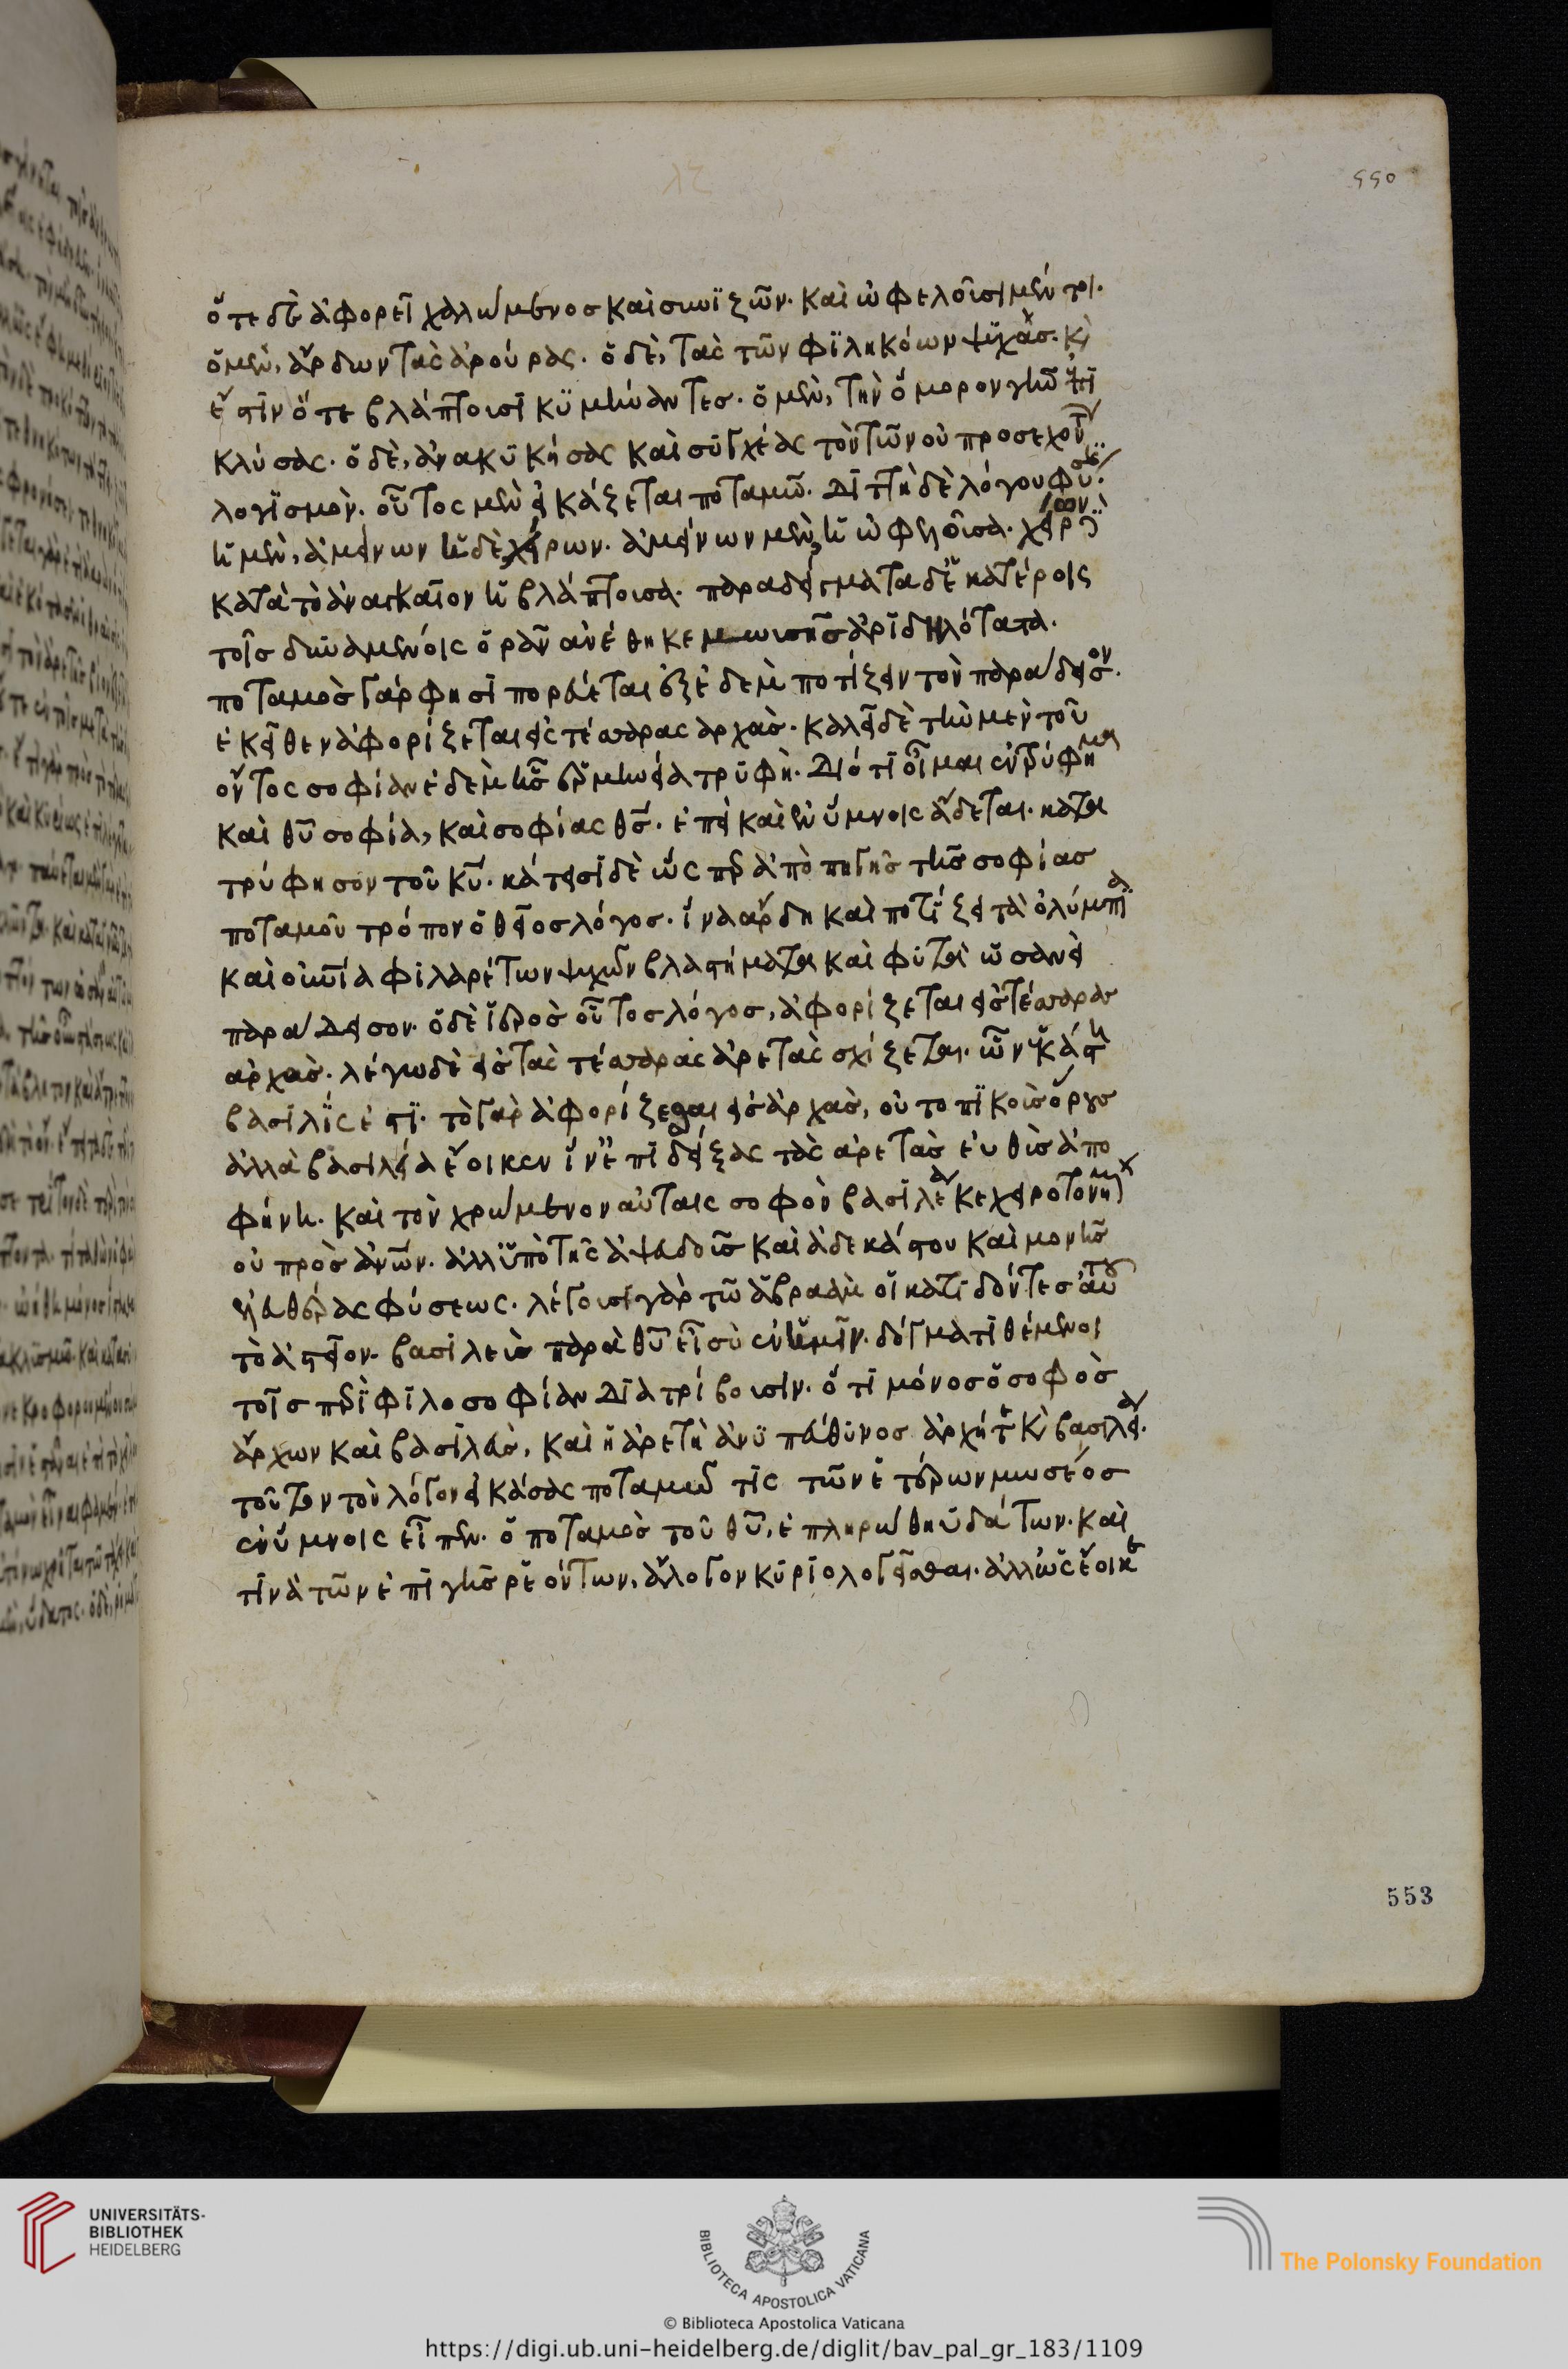 ὅτε δὲ ἀφορεῖ χαλώμενος καὶ συνϊζῶν. καὶ ὠφελοῦσι μέν τοι.
ὁ μὲν, ἄρδων τὰς ἀρούρας. ὁ δὲ, τὰς τῶν φιληκόων ψυχάς. κ(αὶ)
ἔστιν ὅτε βλάπτουσι κυμήναντες. ὁ μὲν, τὴν ὅμορον γῆν ἐπι
κλύσας. ὁ δὲ, ἀνακυκήσας καὶ συγχέας τὸν τῶν οὐ προσεχόντ(ων)
λογισμόν. οὗτος μὲν εἰκάζεται ποταμῶ. διττὴ δὲ λόγου φύσις.
ἡ μὲν, ἀμείνων ἡ δὲ, χείρων. ἀμείνων μὲν, ἡ ὠφελοῦσα. χείρον
κατὰ τὸ ἀναγκαῖον ἡ βλάπτουσα. παραδείγματα δ' ἑκατέροις
τοῖς δυναμένοις ὁρᾶν ἀνέθηκε μωυσῆς ἀριδηλότατα.
ποταμὸς γάρ φησι πορεύεται ἐξ ἐδὲμ ποτίζειν τὸν παράδεισον.
ἐκεῖθεν ἀφορίζεται εἰς τέσσαρας ἀρχάς. καλεῖ δὲ τὴν μὲν τοῦ
ὄντος σοφίαν ἐδὲμ ἧς ἑρμηνεία τρυφή. διότι οἶμαι ἐντρύφημα
καὶ θ(εο)ῦ σοφία, καὶ σοφίας θ(εό)ς. ἐπεὶ καὶ ἐν ὕμνοις ἄδεται. κατα
τρύφησον τοῦ κ(υρίο)υ. κάτεισι δὲ ὥσπερ ἀπὸ πηγῆς τῆς σοφίας
ποταμοῦ τρόπον ὁ θεῖος λόγος. ἵνα ἄρδη καὶ ποτίζει τὰ ὀλύμπια
καὶ οὐ(ρά)νια φιλαρέτων ψυχῶν βλαστήματα καὶ φυτὰ ὡσανεὶ
παράδεισον. ὁ δὲ ἱερὸς οὗτος λόγος, ἀφορίζεται εἰς τέσσαρας
ἀρχάς. λέγω δὲ εἰς τὰς τέσσαρας ἀρετὰς σχίζεται. ὧν ἑκάστη
βασιλίς ἐστι. τὸ γὰρ ἀφορίζεσθαι εἰς ἀρχάς, οὐ τοπικοῖς ὅροις
ἀλλὰ βασιλεία ἔοικεν ἵν' ἐπιδείξας τὰς ἀρετὰς εὐθὺς ἀπο
φήνη. καὶ τὸν χρώμενον αὐταῖς σοφὸν βασιλέα κεχειροτονημ(ένον)
οὐ πρὸς ἀν(θρώπ)ων. ἀλλ' ὑπὸ τῆς ἀψευδοῦς καὶ ἀδεκάστου καὶ μόνης
ἐλευθέρας φύσεως. λέγουσι γὰρ τῶ ἀβραὰμ οἱ κατιδόντες αὐτοῦ
τὸ ἀστεῖον. βασιλεὺς παρὰ θ(εο)ῦ εἶ σὺ ἐν ἡμῖν. δόγμα τιθέμενοι
τοῖς περὶ φιλοσοφίαν διατρίβουσιν. ὅτι μόνος ὁ σοφὸς
ἄρχων καὶ βασιλεὺς, καὶ ἡ ἀρετὴ ἀνυπεύθυνος ἀρχή τε κ(αὶ) βασιλεία.
τοῦτον τὸν λόγον εἰκάσας ποταμῶ τις τῶν ἑταίρων μωσέος
ἐν ὕμνοις εἶπεν. ὁ ποταμὸς τοῦ θ(εο)ῦ, ἐπληρώθη ὑδάτων. καὶ
τινὰ τῶν ἐπὶ γῆς ῥεόντων, ἄλογον κυριολογεῖσθαι. ἀλλ' ὡς ἔοικε
550
553
UNIVERSITÄTS-
BIBLIOTHEK
HEIDELBERG
BIBLIOTECA APOSTOLICA VATICANA
The Polonsky Foundation
© Biblioteca Apostolica Vaticana
https://digi.ub.uni-heidelberg.de/diglit/bav_pal_gr_183/1109